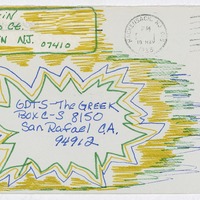 IN
CE.
N NJ. 07410
PM
19 MAR
GDTS-The GREEK
Box C-S 8150
San Rafael CA.
94912